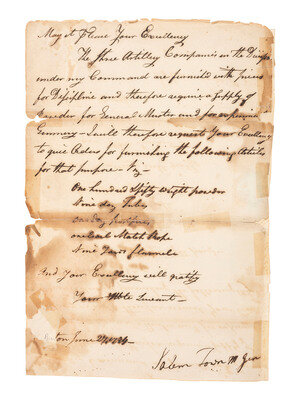 May it Please Your Excellency
The Three Artillery Companies in the Division
under my Command are furnished with pieces
for Discipline and therefore require a Supply of
Powder for General Muster and for experience
Gunnery - I will therefore request Your Excellency
to give Orders for furnishing the following Articles
for that purpose - Viz -
One hundred fifty weight powder
Nine doz Tubes
one doz
one Coil Match Rope
Nine Yards flannels
And Your Excellency will gratify
Your Hble Servent -
June
Salem Town M Gen